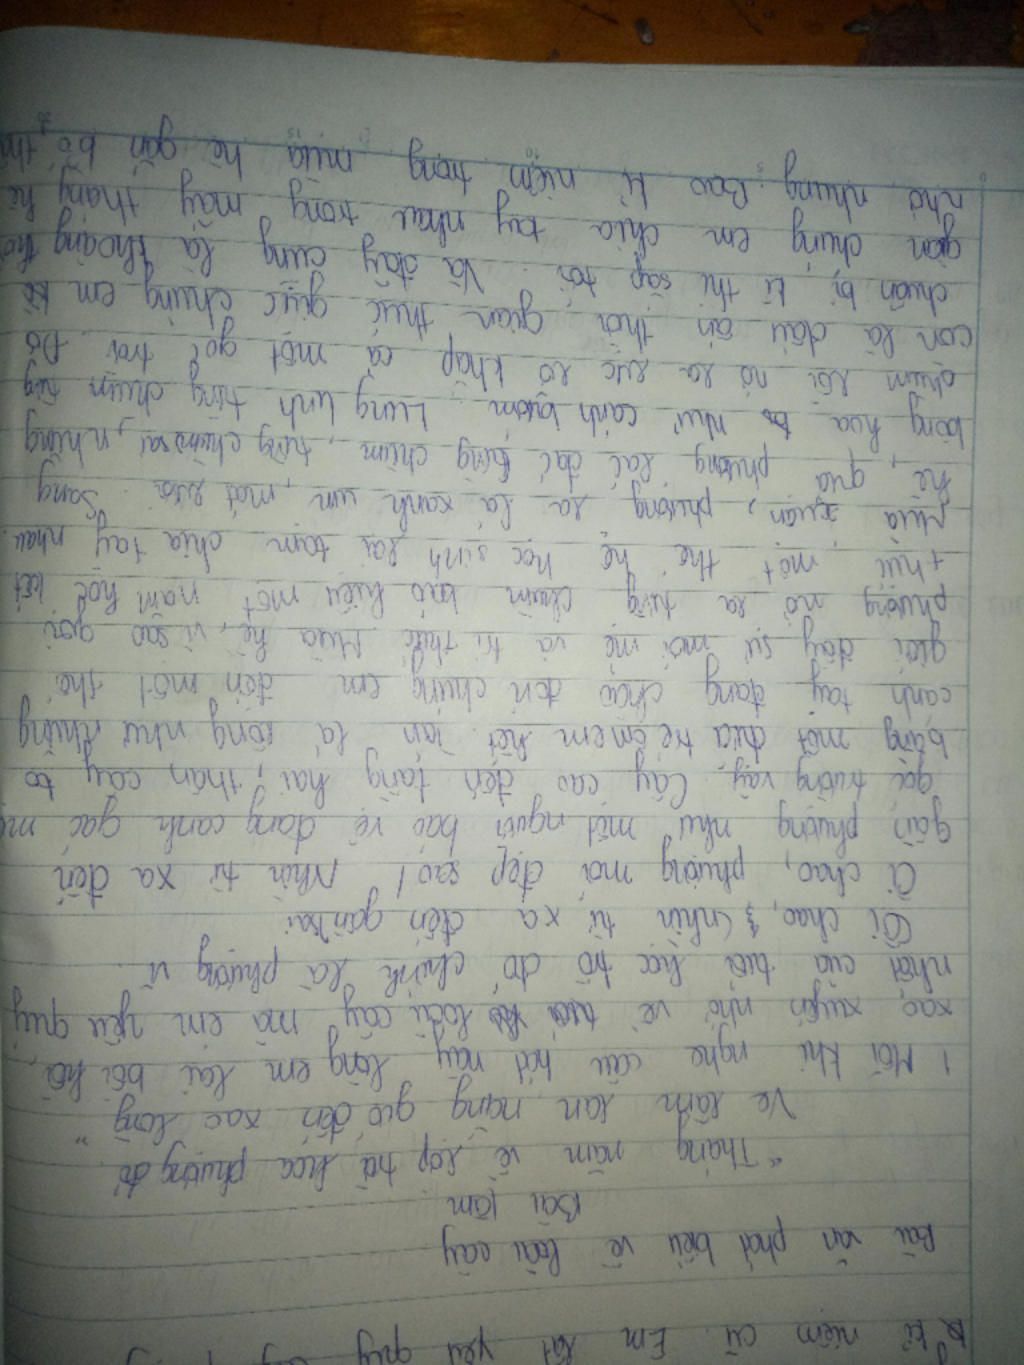 kỉ niệm cũ. Em rất yêu quý
Bài văn phát biểu về loài cây
Bài làm
"Tháng năm về lợp trời hoa phượng đỏ
Ve râm ran nắng gió đến xao lòng"
1 Mỗi khi nghe câu hát này lòng em lại bồi hồi,
xao xuyến nhớ về loài cây mà em yêu quý
nhất của tuổi học trò đó chính là phượng vĩ.
Ôi chao, nhìn từ xa đến gần
Ôi chao, phượng mới đẹp sao! Nhìn từ xa đến
gần phượng như một người bảo vệ đang canh gác
góc trường vậy. Cây cao đến tầng hai, thân cây to
bằng một đứa trẻ ôm hết. Tán lá rộng như những
cánh tay đang chào đón chúng em đến một thế
giới đầy sự mới mẻ và tri thức. Mùa hè, vì sao gọi
phượng nở ra từng chùm báo hiệu một năm học kết
thúc, một thế hệ học sinh lại tạm chia tay nhau.
Mùa xuân, phượng ra lá xanh um, mát rượi. Sang
hè, quả phượng lác đác từng chùm, từng chùm, những
bông hoa như cánh bướm. Lung linh từng chùm từng
chùm rồi nở ra rực rỡ khắp cả một góc trời. Đó
còn là dấu ấn thời gian thúc giục chúng em
chuẩn bị kì thi sắp tới. Và đây cũng là khoảng thời
gian chúng em chia tay nhau trong mấy tháng hè
nhớ nhung. Bao kỉ niệm trong mùa hè gắn bó,